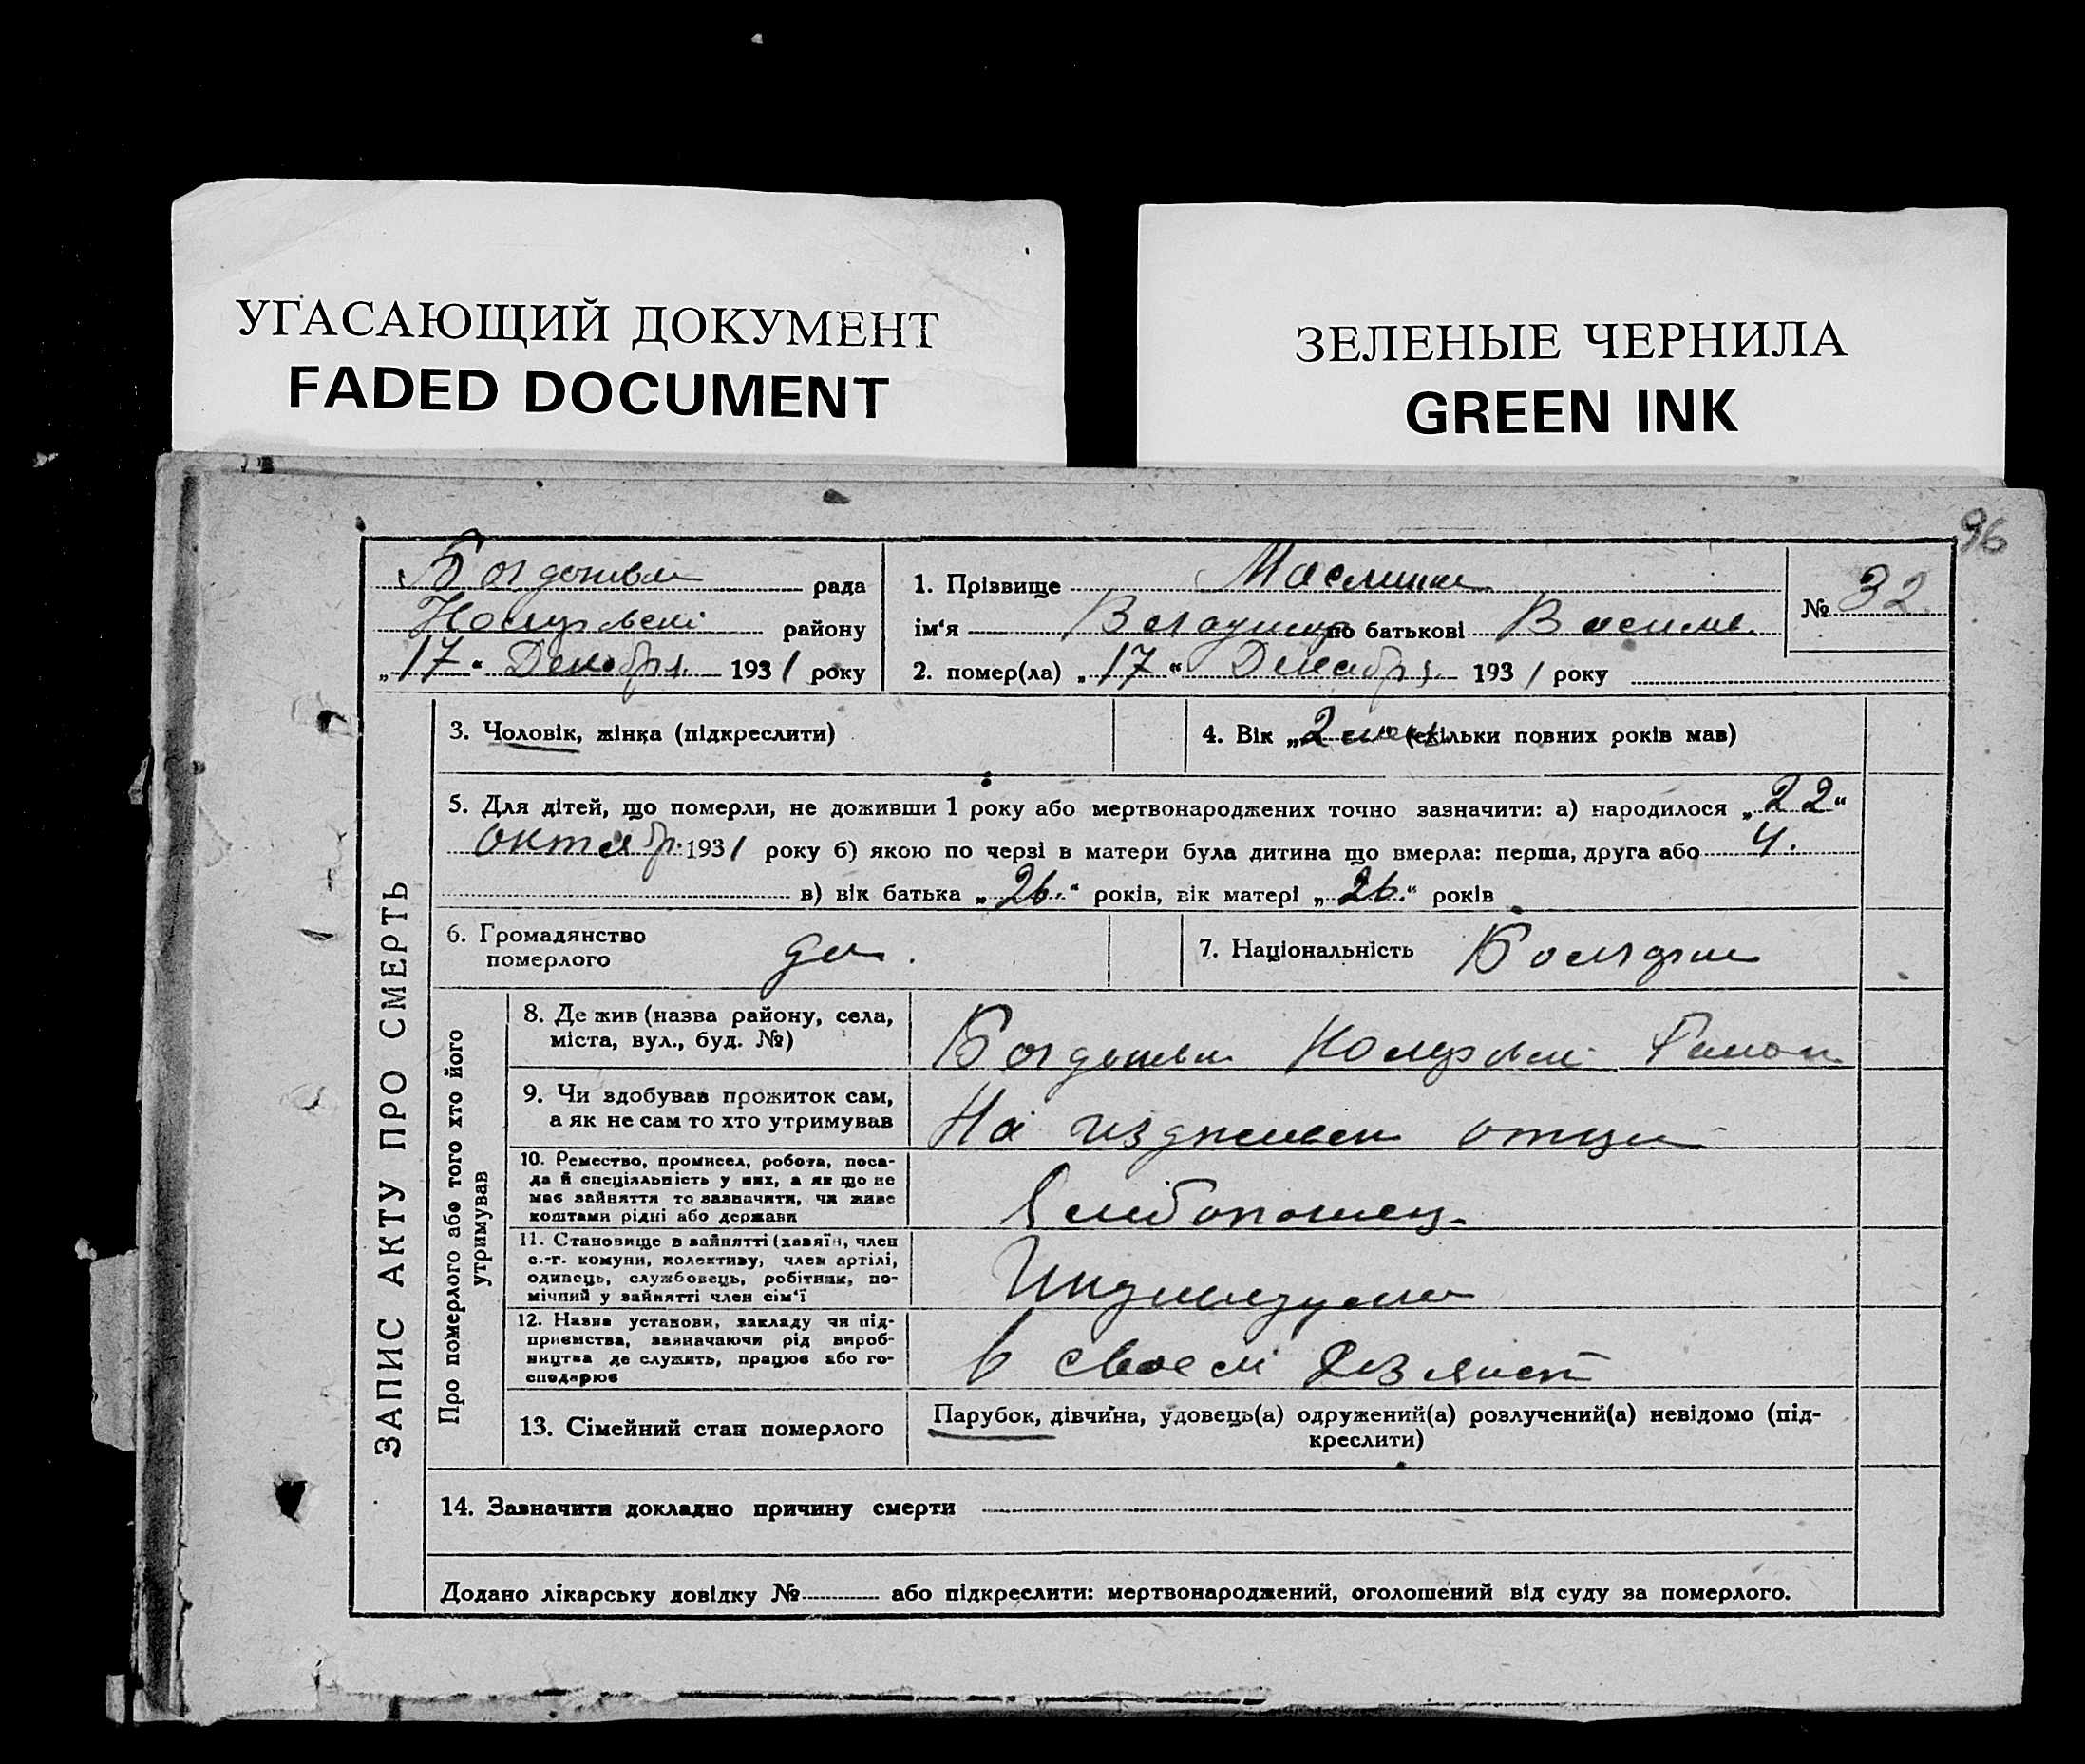 УГАСАЮЩИЙ ДОКУМЕНТ
FADED DOCUMENT
ЗЕЛЕНЫЕ ЧЕРНИЛА
GREEN INK
96
рада
району
„17“ Декабря 1931 року
1. Прізвище
ім‘я Владимир по батькові Васильев.
2. помер(ла) „17“ Декабря 1931 року
№ 32
ЗАПИС АКТУ ПРО СМЕРТЬ
3. Чоловік, жінка (підкреслити)
4. Вік „2 мес“ (скільки повних років мав)
5. Для дітей, що померли, не доживши 1 року або мертвонароджених точно зазначити: а) народилося „22“
октябр. 1931 року б) якою по черзі в матери була дитина що вмерла: перша, друга або 4.
в) вік батька „26.“ років, вік матері „26.“ років
6. Громадянство
померлого
7. Національність
Про померлого або того хто його
утримував
8. Де жив (назва району, села,
міста, вул., буд. №)
9. Чи здобував прожиток сам,
а як не сам то хто утримував
На иждивен отца
10. Ремество, промисел, робота, поса-
да й спеціяльність у них, а як що не
має зайняття то зазначити, чи живе
коштами рідні або держави
Хлібопашец.
11. Становище в зайнятті (хазяїн, член
с.-г. комуни, колективу, член артілі,
одинець, службовець, робітник, по-
мічний у зайнятті член сім‘ї
12. Назва установи, закладу чи під-
приємства, зазначаючи рід вироб-
ництва де служить, працює або го-
сподарює
в своем
13. Сімейний стан померлого
Парубок, дівчина, удовець(а) одружений(а) розлучений(а) невідомо (під-
креслити)
14. Зазначити докладно причину смерти
Додано лікарську довідку № або підкреслити: мертвонароджений, оголошений від суду за померлого.